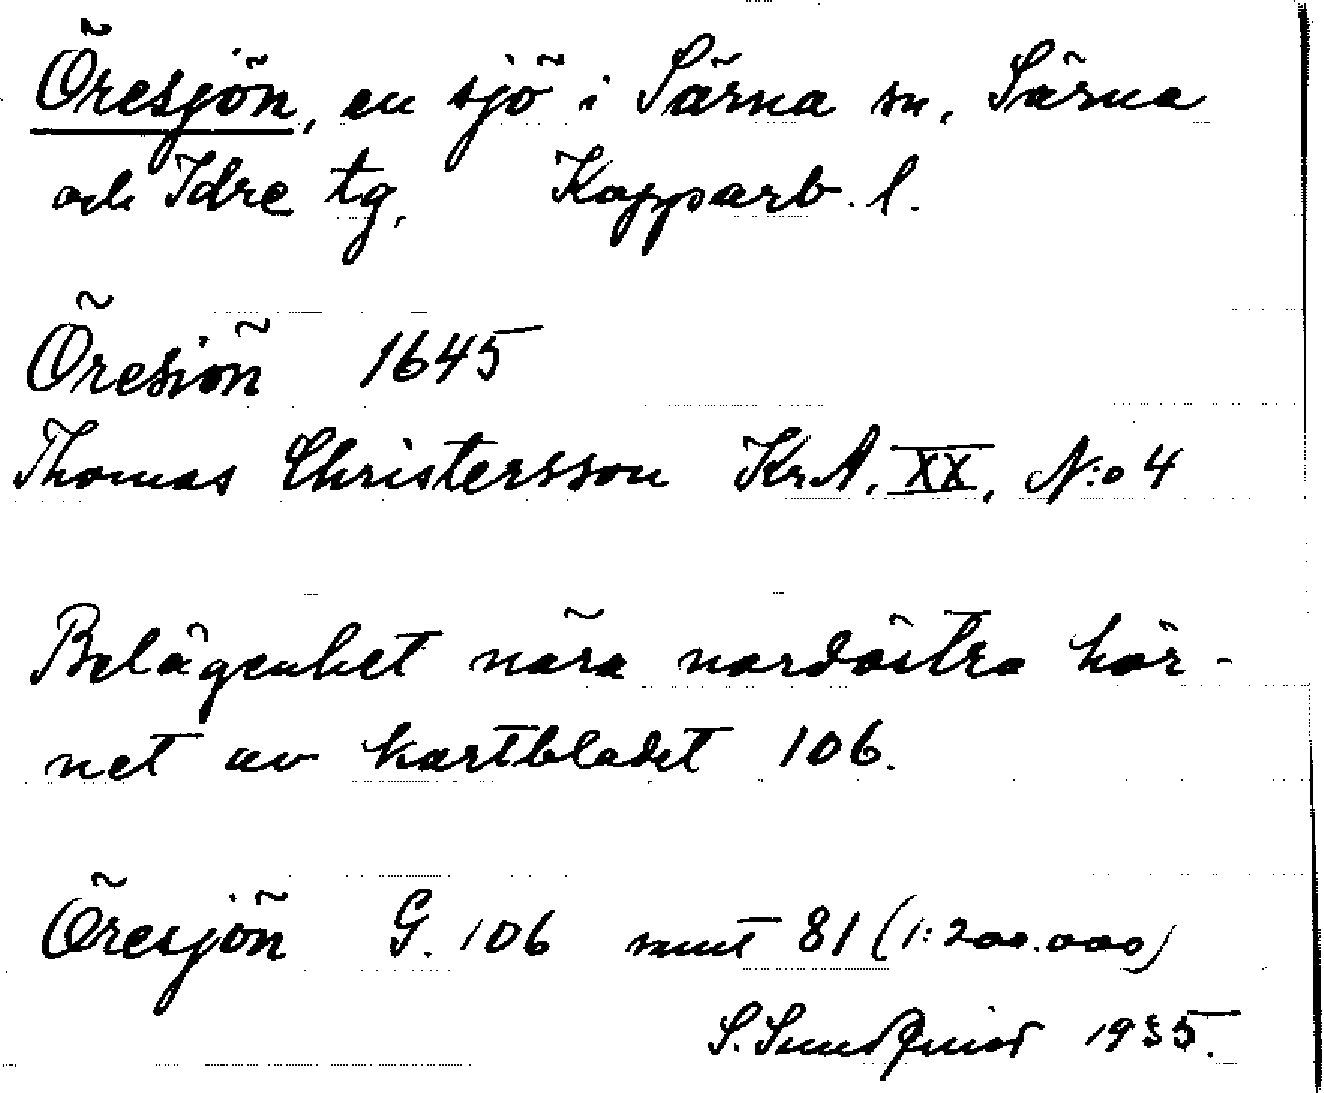 Öresjön, en sjö i Särna sn, Särna
och Idre tg. Kopparb. l.
Öresiön 1645
Thomas Christersson KrA, XX, N:o 4
Belägenhet nära nordöstra hör-
net av kartbladet 106.
Öresjön G. 106 samt 81 (1:200.000)
S. Sundquist 1935.